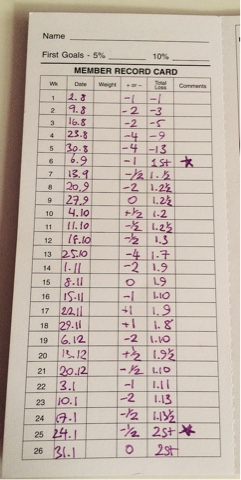 Name
First Goals - 5% 10%
MEMBER RECORD CARD
Wk Date Weight + or - Total Loss Comments
1 2.8 -1 -1
2 9.8 -2 -3
3 16.8 -2 -5
4 23.8 -4 -9
5 30.8 -4 -13
6 6.9 -1 1st ★
7 13.9 -½ 1.½
8 20.9 -2 1.2½
9 27.9 0 1.2½
10 4.10 +½ 1.2
11 11.10 -½ 1.2½
12 18.10 -½ 1.3
13 25.10 -4 1.7
14 1.11 -2 1.9
15 8.11 0 1.9
16 15.11 -1 1.10
17 22.11 +1 1.9
18 29.11 +1 1.8
19 6.12 -2 1.10
20 13.12 +½ 1.9½
21 20.12 -½ 1.10
22 3.1 -1 1.11
23 10.1 -2 1.13
24 17.1 -½ 1.13½
25 24.1 -½ 2st ★
26 31.1 0 2st